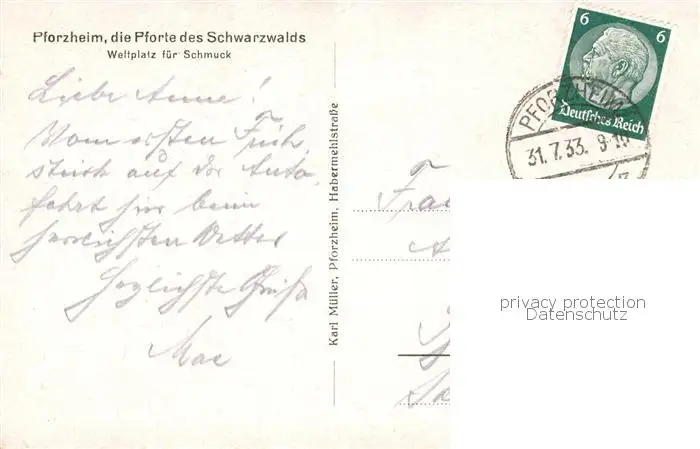 Pforzheim, die Pforte des Schwarzwalds
Weltplatz für Schmuck
Liebe Anne!
Vom ersten Früh-
stück auf der Auto-
fahrt hier beim
herrlichsten Wetter
herzlichste Grüße
Mac
Karl Müller, Pforzheim, Habermehlstraße
6 6
Deutsches Reich
PFORZHEIM
31.7.33. 9-10
Frau
privacy protection
Datenschutz